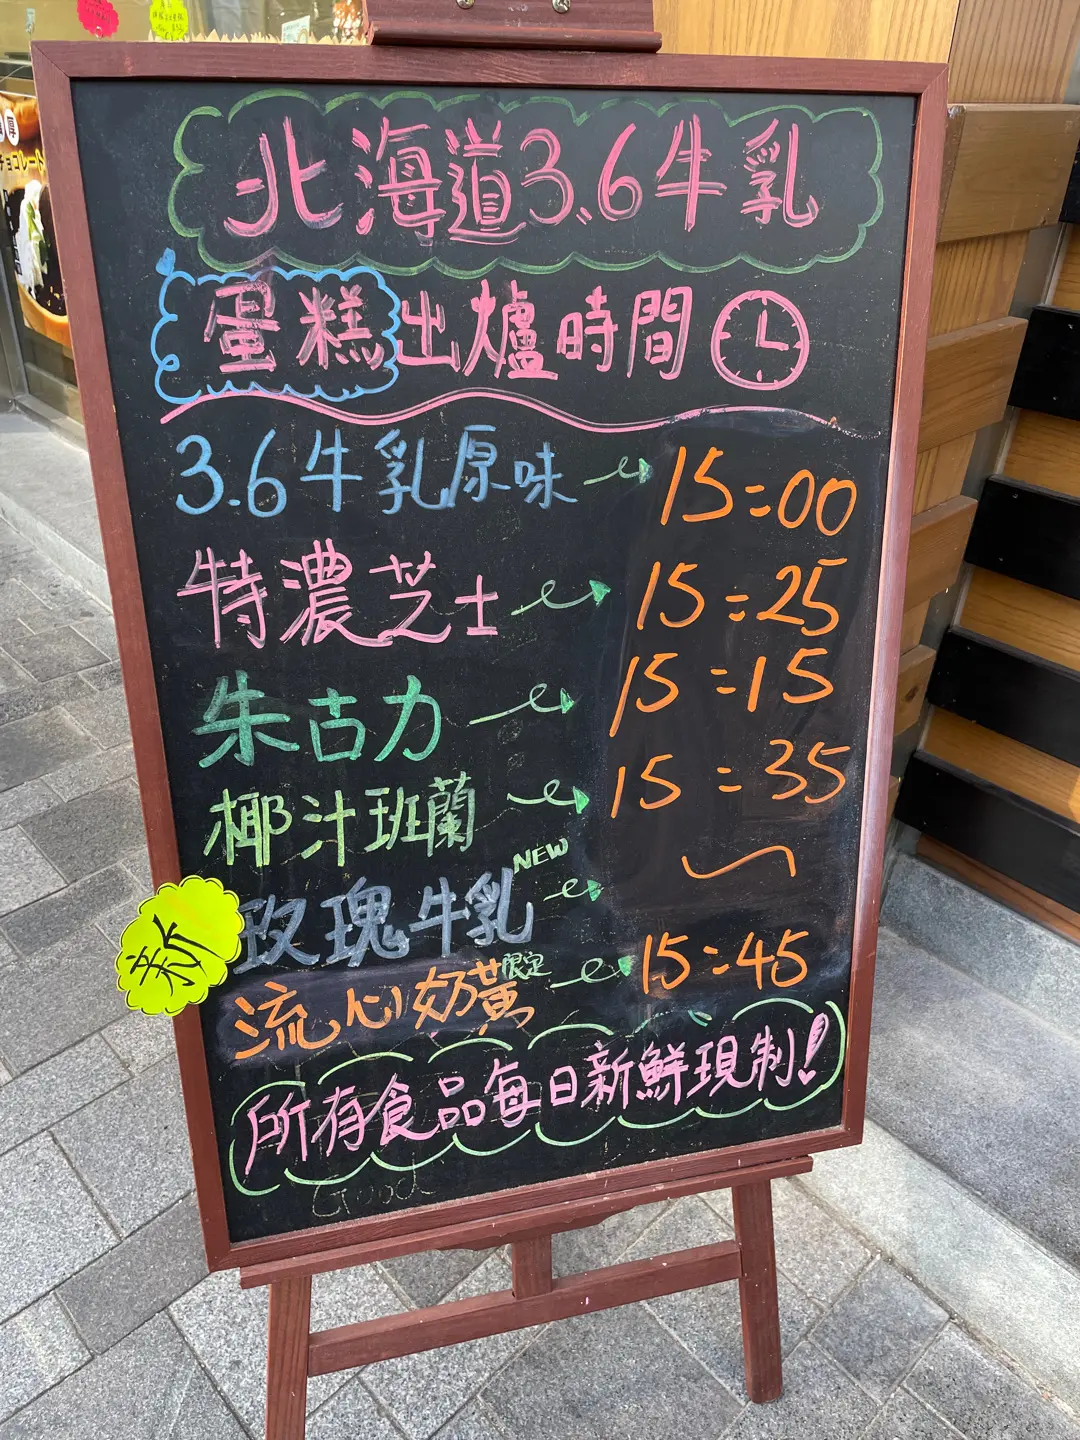 北海道3.6牛乳
蛋糕出爐時間
3.6牛乳原味 15:00
特濃芝士 15:25
朱古力 15:15
椰汁班蘭 15:35
NEW
玫瑰牛乳 ~
新
限定
流心奶黃 15:45
所有食品每日新鮮現制!
Good
チョコレート